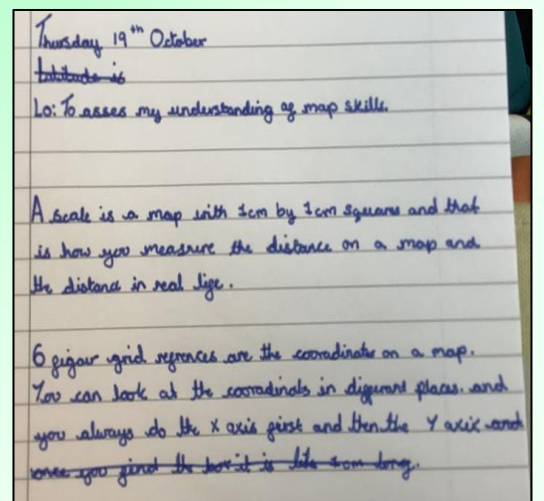 Thursday 19th October
Latitude is
Lo: To asses my understanding of map skills.
A scale is a map with 1cm by 1cm squares and that
is how you measure the distance on a map and
the distance in real life.
6 figaur grid refrences are the cooradinates on a map.
You can look at the cooradinats in diffurant places. and
you always do the X axis first and then the Y axic and
once you find the box it is like 1cm long.